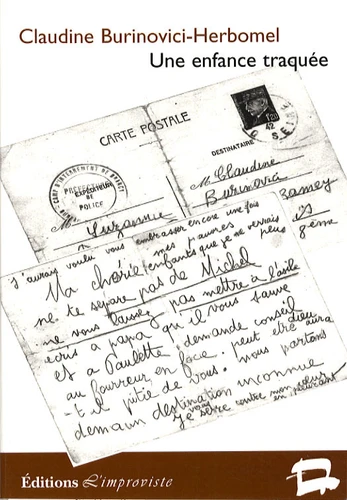 Claudine Burinovici-Herbomel
Une enfance traquée
CARTE POSTALE
DESTINATAIRE
EXPÉDITEUR
POLICE
M Suzanne
M Claudine
Burinovici
8ème
J'aurais voulu vous embrasser encore une fois
mes pauvres
enfants que je ne verrais plus
Ma chérie
ne te sépare pas de Michel
ne vous laissez pas mettre à l'asile
écris à papa qu'il vous sauve
et a Paulette, demande conseil
au fourreur en face. peut être aura
-t-il pitié de vous. nous partons
demain destination inconnue
je vous serre contre mon cœur
en pleurant
Éditions L'improviste